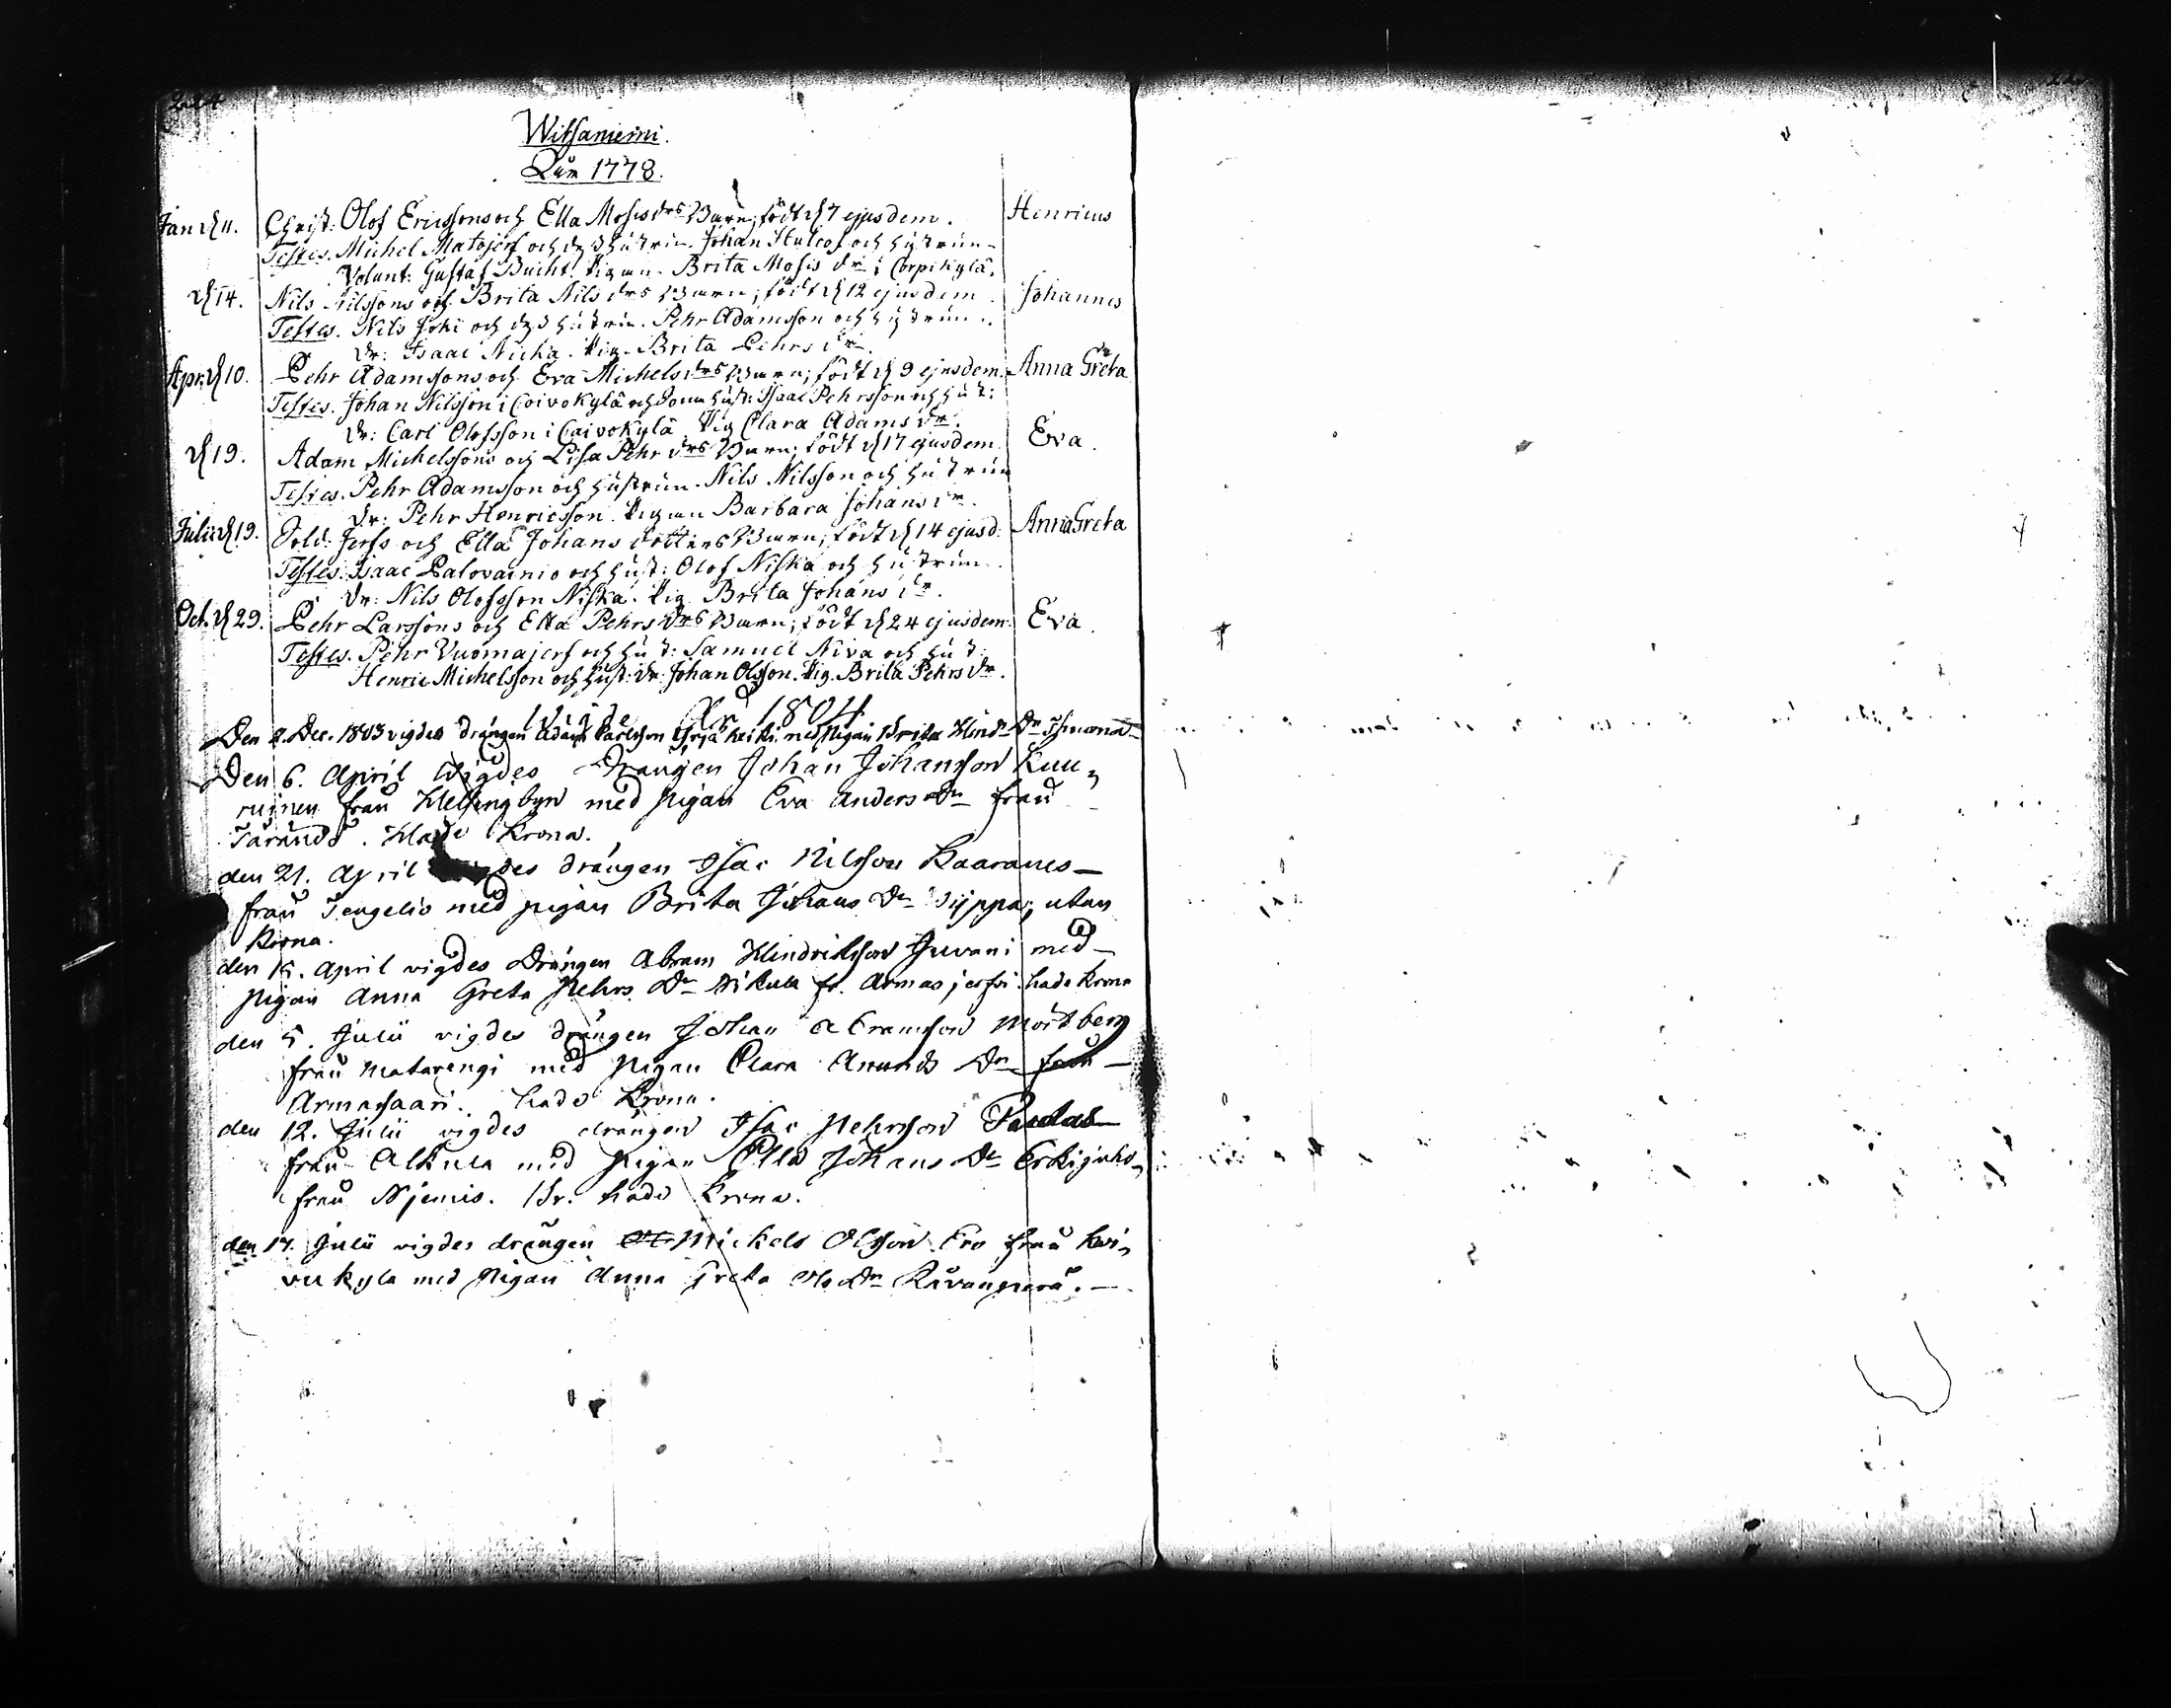 224
Witsaniemi.
1778.
Jan: d 11. Christ: Olof Ericssons och Ella Mosis drs Barn; födt d 7 ejusdem. Henricus
Testes. Michel Matojerf och dess hustru. Johan Hulcof och hustrun.
Volunt: Gustaf Bucht. Pigan Brita Mosis dr i Corpikylä.
d 14. Nils Nilssons och Brita Nils drs Barn; födt d 12 ejusdem. Johannes
Testes. Nils Joki och dess hustru. Pehr Adamsson och hustrun.
Dr: Isaac Niska. Pig. Brita Pehrs dr.
Apr. d 10. Pehr Adamssons och Eva Michels drs Barn; födt d 9 ejusdem. Anna Greta
Testes. Johan Nilsson i Coivokylä och dess hust: Isaac Pehrsson och hust:
Dr: Carl Olofsson i Caivokylä Pig Clara Adams dr.
d 19. Adam Michelssons och Lisa Pehr drs Barn; födt d 17 ejusdem. Eva.
Testes. Pehr Adamsson och hustrun. Nils Nilsson och hustrun
Dr: Pehr Henricsson. Pigan Barbara Johans dr.
Julii d 19. Sold: Jerfs och Ella Johans dotters Barn; födt d 14 ejusd: Anna Greta
Testes. Isaac Palovainio och hust: Olof Niska och hustrun.
Dr: Nils Olofsson Niska. Pig. Brita Johans dr.
Oct. d 29. Pehr Larssons och Ella Pehrs drs Barn; födt d 24 ejusdem. Eva.
Testes. Pehr Vuomajerf och hust: Samuel Niva och hust:
Henric Michelsson och hust: Dr: Johan Olsson. Pig. Brita Pehrs dr.
Vigde År 1804
Den 2. Dec. 1803 vigdes drängen Adam Carlsson med Pigan Brita Hind. Dr
Den 6. April Wigdes Drängen Johan Johansson Kuu-
ruinen från Hellingbyn med pigan Eva Anders Dr från
Tärändö. Hade Krona.
den 21. April drängen Isac Nilsson Kaaranes
från Tengeliö med pigan Brita Johans Dr utan
Krona.
den 15. April vigdes Drängen Abram Hindriksson Juvani med
pigan Anna Greta Pehrs Dr Nikula fr. Armasjerfvi. hade Krona
den 5. Julii vigdes drängen Johan Abramsson Mörtberg
från Matarengi med pigan Clara Anunds Dr från
Armasaari. hade Krona.
den 12. Julii vigdes drängen Isac Pehrsson
från Alkula med pigan Ella Johans Dr Erkijuho
från Njemis. Br. hade Krona.
den 17. Julii vigdes drängen Mickels Olsson Ero från Koi-
vukyla med Pigan Anna Greta Ols Dr Rävanperä.